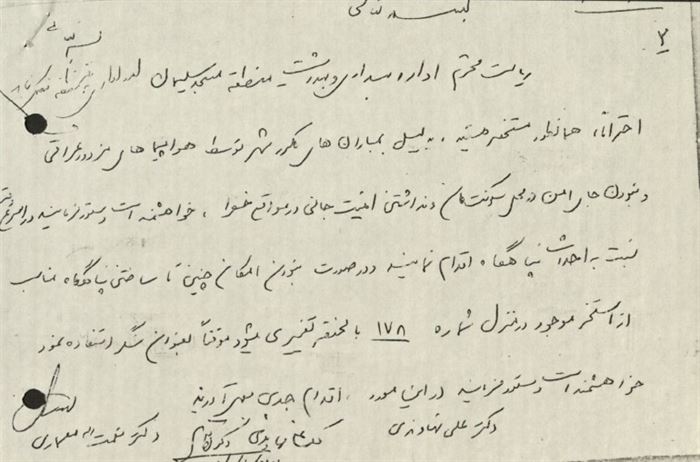 بسمه تعالی
۲
ریاست محترم اداره بهداری و بهزیست منطقه مسجد سلیمان
احتراماً، همانطور مستحضر هستید، به دلیل بمباران های مکرر شهر توسط هواپیما های مزدور عراقی
و نبودن جای امن در محل سکونت مان و نداشتن امنیت جانی در مواقع خطر، خواهشمند است دستور فرمائید در اسرع وقت
نسبت به احداث پناهگاه اقدام نمایند و در صورت نبودن امکان چنین تا ساختن پناهگاه مناسب
از استخر موجود در منزل شماره ۱۷۸ با مختصر تغییری میشود موقتاً بعنوان سنگر استفاده نمود
خواهشمند است دستور فرمائید در این مورد، اقدام جدی بعمل آورند
دکتر علی نهاوندی
دکتر نعمت اله معماری